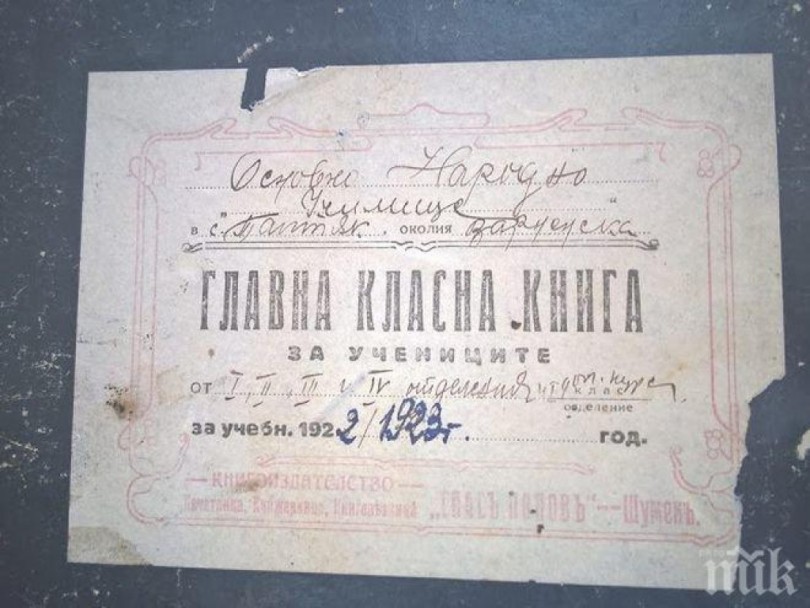 Основно Народно
„ Училище "
в с. околия
ГЛАВНА КЛАСНА КНИГА
ЗА УЧЕНИЦИТЕ
от I, II, III и IV отделения и доп. курс
клас
отделение
за учебн. 192 2/1923 г. год.
— КНИГОИЗДАТЕЛСТВО —
Печатница, Книжарница, Книговезница „СПАСЪ ПОПОВЪ" — Шуменъ.